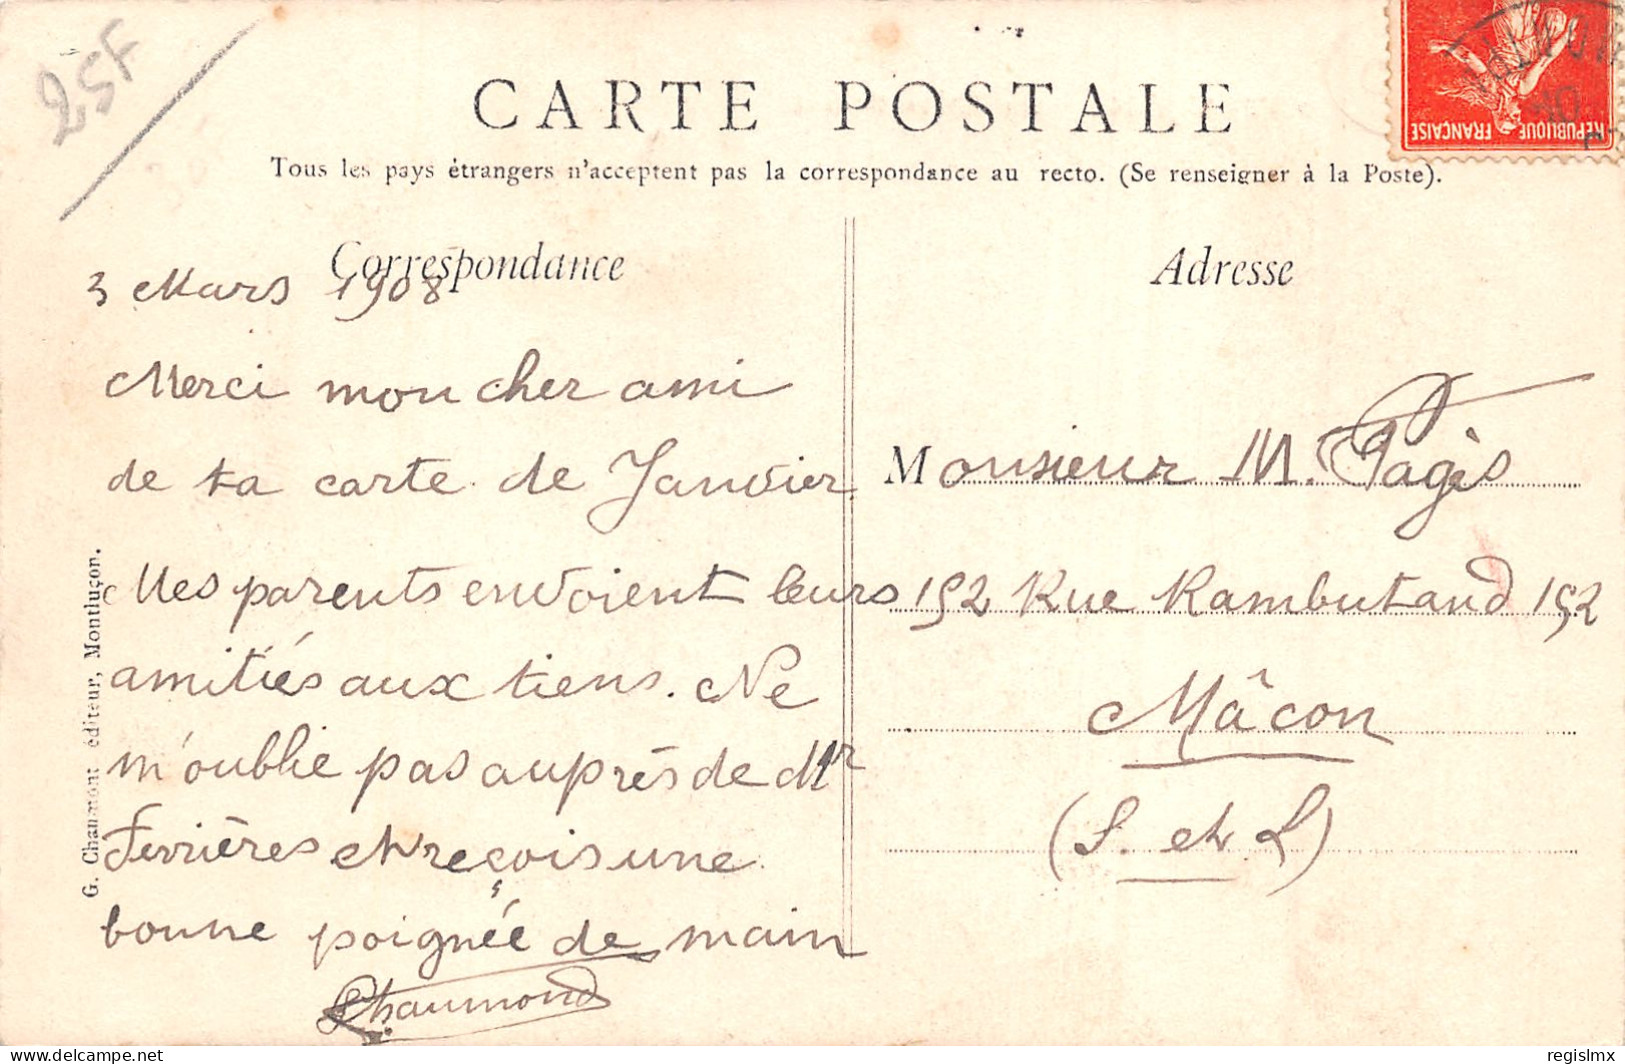 25F
CARTE POSTALE
RÉPUBLIQUE FRANÇAISE
Tous les pays étrangers n'acceptent pas la correspondance au recto. (Se renseigner à la Poste).
Correspondance
3 Mars 1908
Merci mon cher ami
de ta carte de Janvier
Mes parents envoient leurs
amitiés aux tiens. Ne
m'oublie pas auprès de Mr
Ferrières et reçois une
bonne poignée de main
Chaumond
G. Chaumont éditeur, Montluçon.
Adresse
Monsieur M. Pagès
152 Rue Rambuteaud 152
Mâcon
(S. et L)
delcampe.net
regislmx